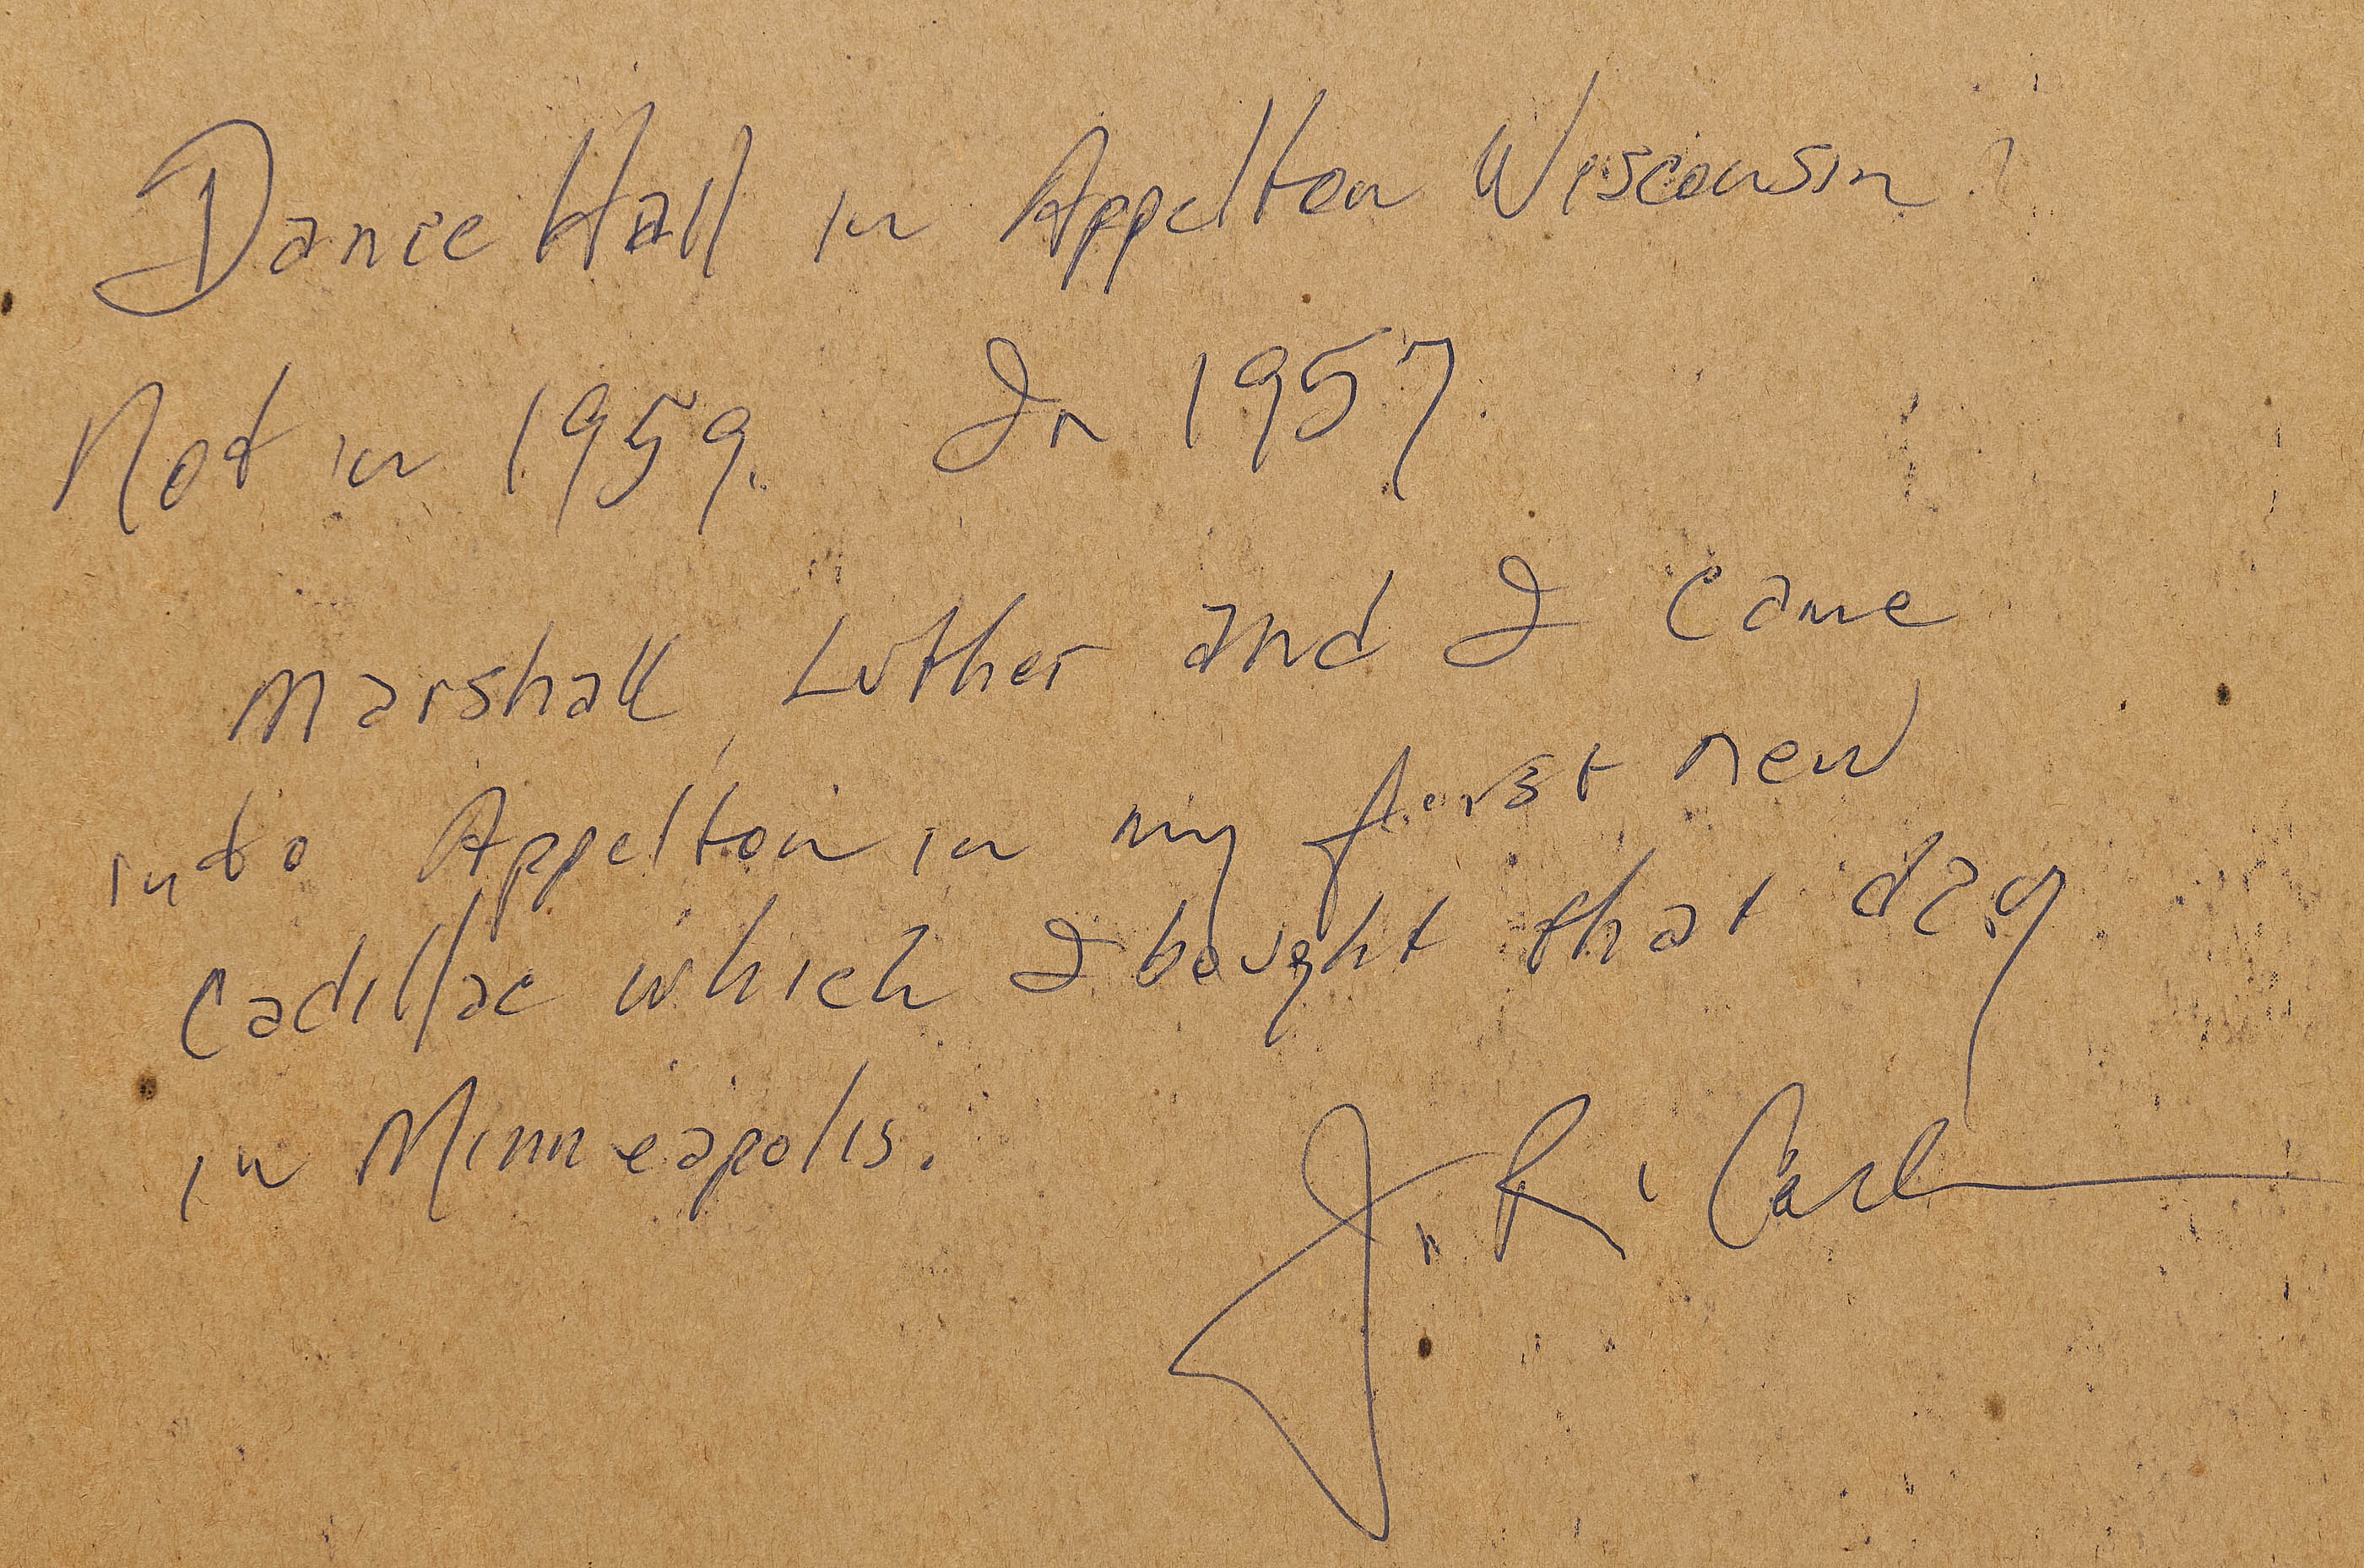 Dance Hall in Appelton Wisconsin?
Not in 1959. In 1957.
Marshall, Luther and I came
into Appelton in my first new
Cadillac which I bought that day
in Minneapolis.
J. R. Cash